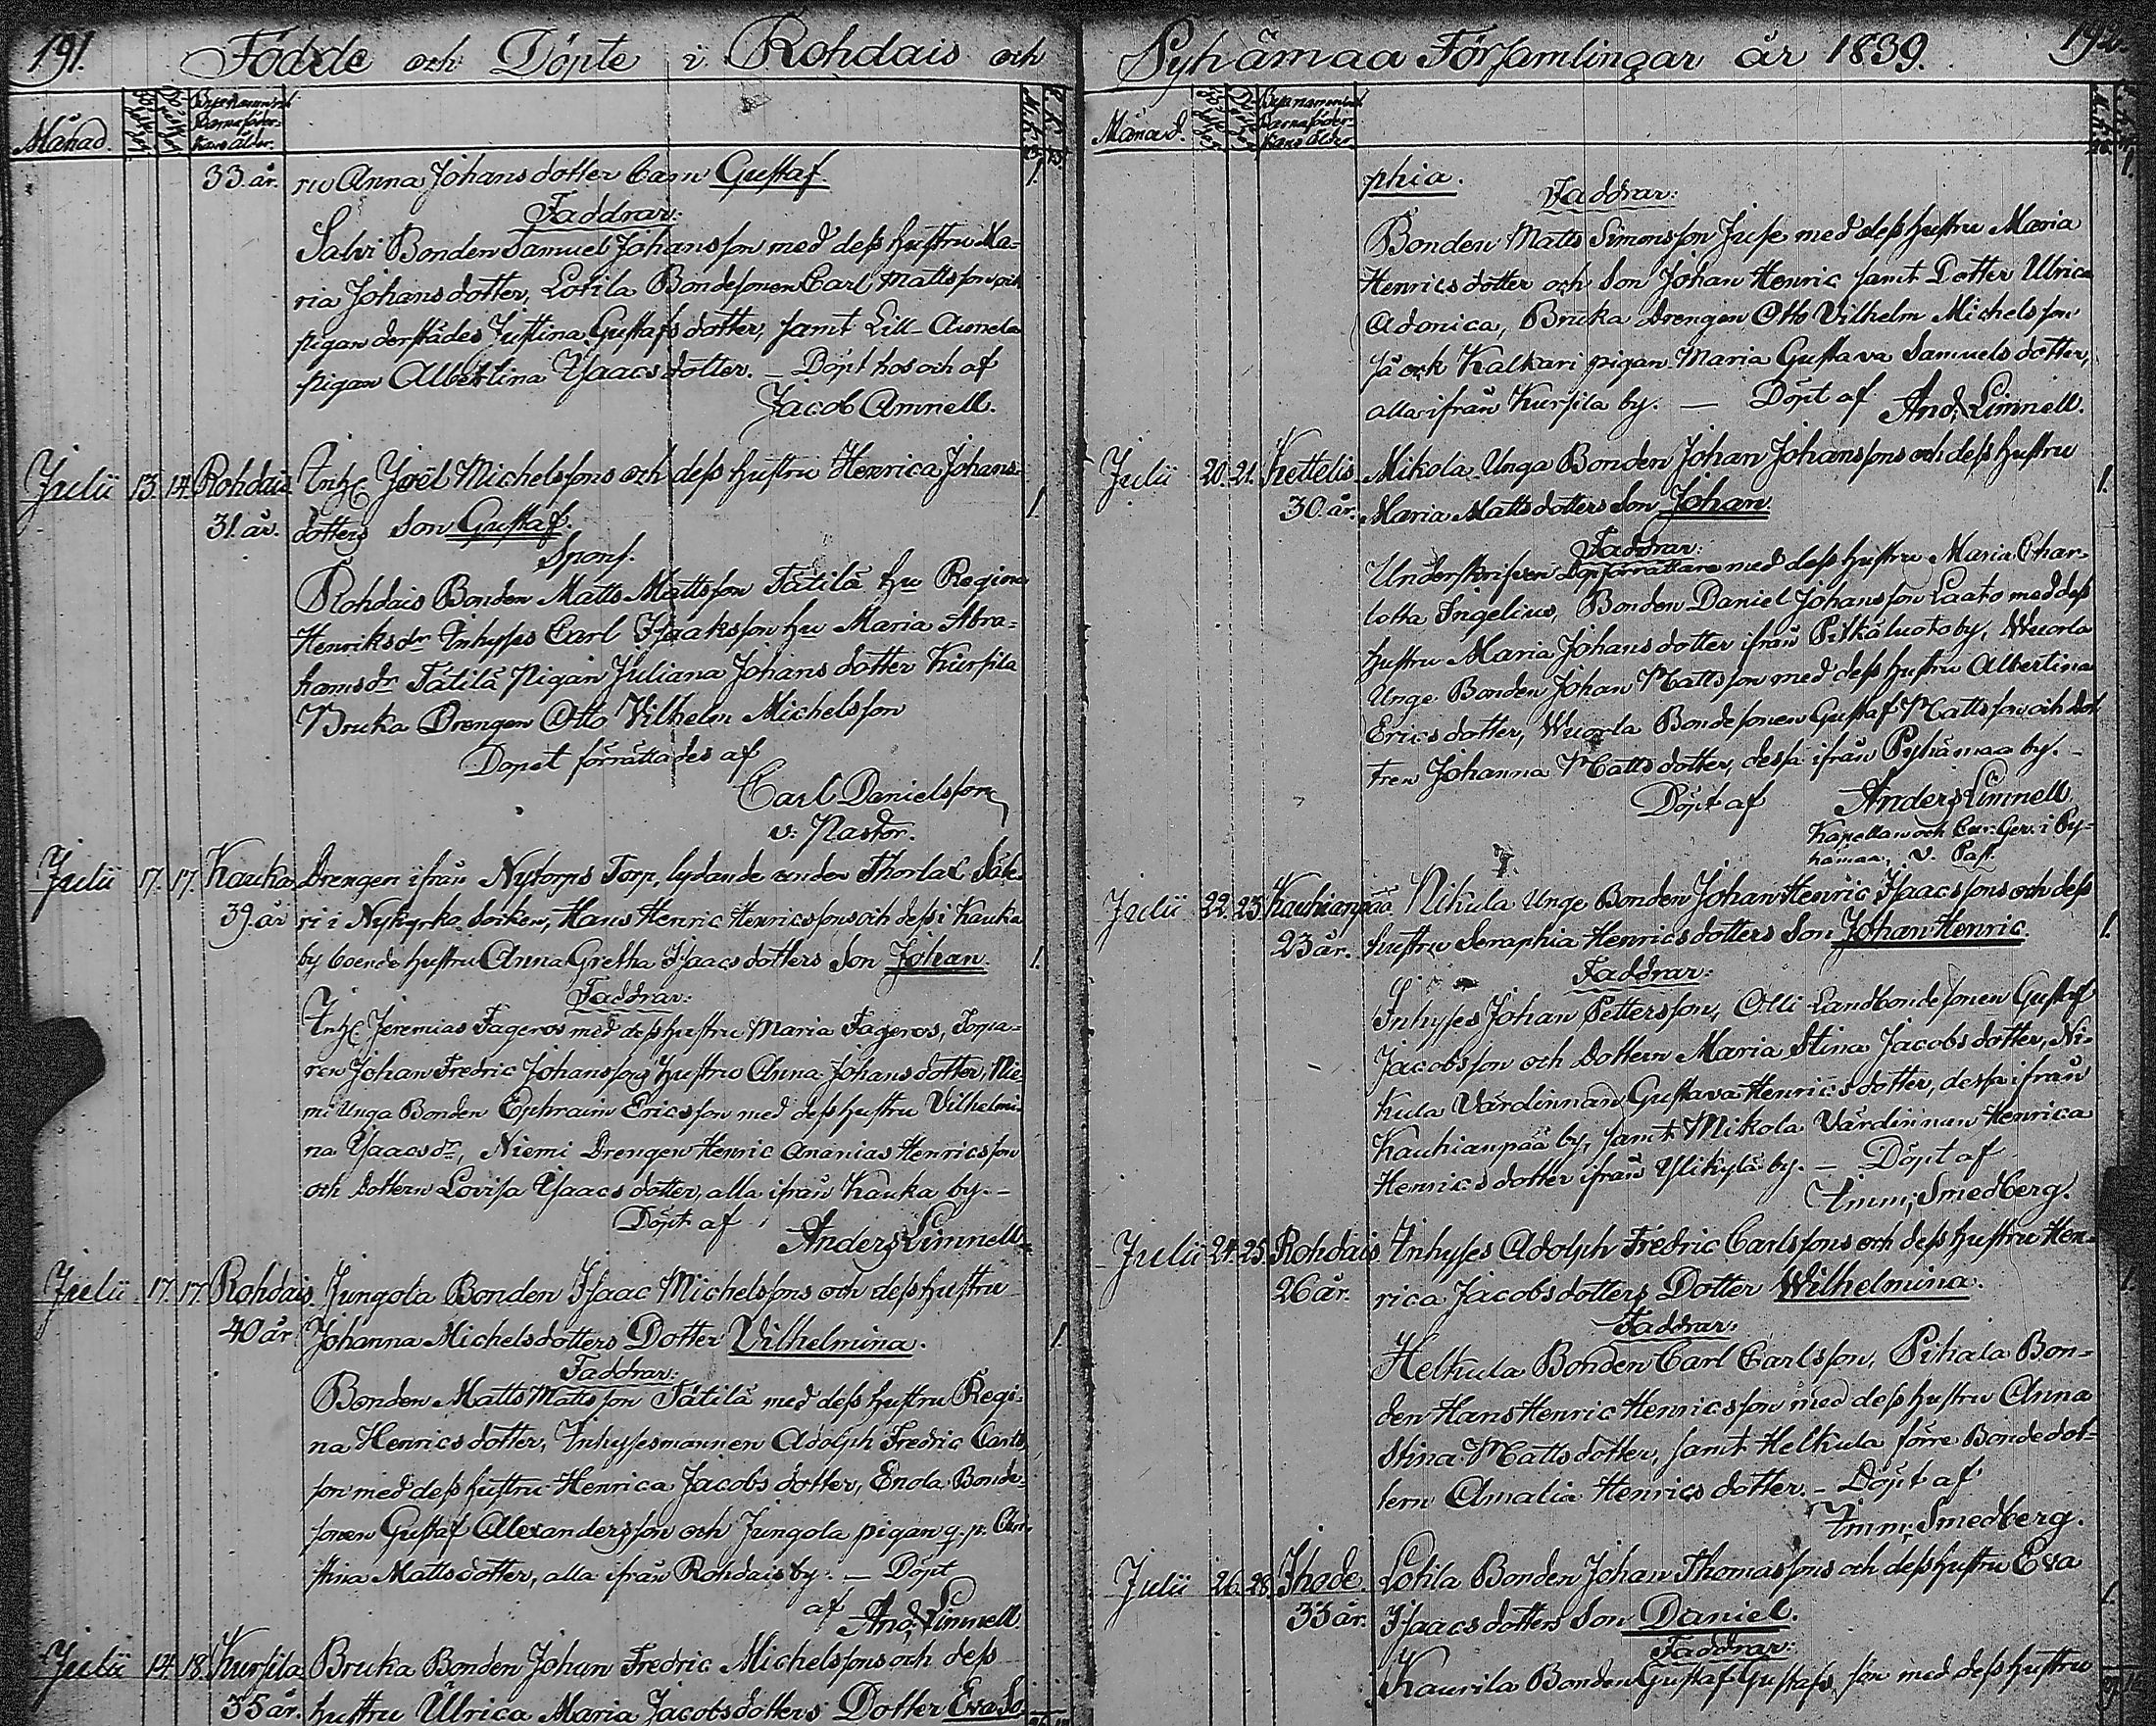 191.
Födde och Döpte i Rohdais och
Månad
Bysnamn
Barnaföder-
skans ålder.
33. år. Anna Johans dotter barn Gustaf.
Faddrar:
Salvi Bonden Samuel Johansson med dess hustru Ma-
ria Johans dotter, Lotila Bondesonen Carl Mattsson och
pigan derstädes Justina Gustafs dotter, samt Lill-Aunela
pigan Albertina Isaacs dotter. — Döpt hos och af
Jacob Amnell.
Julii 13. 14. Rohdais Inh: Joël Michelssons och dess hustru Henrica Johans-
31. år. dotters Son Gustaf.
Spons.
Rohdais Bonden Matts Mattsson Tätilä hu Regina
Henriksdr Inhyses Carl Isaaksson hu Maria Abra-
hamsdr Tätilä Pigan Juliana Johans dotter Kursila
Bruka Drengen Otto Vilhelm Michelsson
Dopet förrättades af
Carl Danielsson
v: Pastor.
Julii 17. 17. Kauka Drengen ifrån Nytorps Torp, lydande under Thorlax Säte-
39. år ri i Nykyrko socken, Hans Henric Henricssons och dess i Kauka
by boende hustru Anna Gretha Isaacs dotters Son Johan. 1.
Faddrar:
Inh: Jeremias Fageros med dess hustru Maria Fageros, Torpa-
ren Johan Fredric Johanssons hustru Anna Johans dotter, Nie-
mi Unga Bonden Ephraim Ericsson med dess hustru Vilhelmi-
na Isaacsdr, Niemi Drengen Henric Ananias Henricsson
och dottern Lovisa Isaacs dotter, alla ifrån Kauka by. —
Döpt af
Anders Limnell.
Julii 17. 17. Rohdais. Jungola Bonden Isaac Michelssons och dess hustru
40 år Johanna Michelsdotters Dotter Vilhelmina. 1.
Faddrar:
Bonden Matts Mattsson Tätilä med dess hustru Regi-
na Henrics dotter, Inhysesmannen Adolph Fredric Carls-
son med dess hustru Henrica Jacobs dotter, Enola Bonde-
sonen Gustaf Alexandersson och Jungola pigan q. p.
stina Matts dotter, alla ifrån Rohdais by. — Döpt
af And. Limnell.
Julii 14. 18. Kursila Bruka Bonden Johan Fredric Michelssons och dess
35 år. hustru Ulrica Maria Jacobsdotters Dotter Eva So-
Pyhämaa Församlingar år 1839. 192.
Månad.
Bysnamn
Barnaföder-
skans ålder
phia. 1.
Faddrar:
Bonden Matts Simonsson Juse med dess hustru Maria
Henrics dotter och Son Johan Henric samt Dotter Ulrica
Adonica, Bruka Drengen Otto Vilhelm Michelsson
så ock Kalkari pigan Maria Gustava Samuels dotter,
alla ifrån Kursila by. — Döpt af And. Limnell.
Julii 20. 21. Kettelis Mikola Unga Bonden Johan Johanssons och dess hustru 1.
30. år. Maria Matts dotters Son Johan.
Faddrar:
Underskrifven Döpförrättare med dess hustru Maria Char-
lotta Ingelius, Bonden Daniel Johansson Laato med dess
hustru Maria Johans dotter ifrån Pitkäluoto by, Wuorla
Unge Bonden Johan Mattsson med dess hustru Albertina
Erics dotter, Wuorla Bondesonen Gustaf Mattsson och dot
tren Johanna Matts dotter, dessa ifrån Pyhämaa by. —
Döpt af Anders Limnell
Kapellan och Cur: Ger: i Py-
hämaa, v. Past.
Julii 22. 23. Kauhianpää Nikula Unge Bonden Johan Henric Isaacssons och dess
23 år. hustru Seraphia Henrics dotters Son Johan Henric. 1.
Faddrar:
Inhyses Johan Pettersson, Olli Landbondesonen Gustaf
Jacobsson och Dottern Maria Stina Jacobs dotter, Ni-
kula Värdinnan Gustava Henrics dotter, dessa ifrån
Kauhianpää by, samt Mikola Värdinnan Henrica
Henrics dotter ifrån Ylikylä by. — Döpt af
Imm: Smedberg.
Julii 24. 25. Rohdais. Inhyses Adolph Fredric Carlssons och dess hustru Hen-
26 år. rica Jacobsdotters Dotter Wilhelmina. 1.
Faddrar:
Helkula Bonden Carl Carlsson, Pihala Bon-
den Hans Henric Henricsson med dess hustru Anna
Stina Matts dotter, samt Helkula förre Bondedot-
tern Amalia Henrics dotter. — Döpt af
Imm: Smedberg.
Julii 26. 28. Ihode. Lotila Bonden Johan Thomassons och dess hustru Eva 1.
33 år. Isaacsdotters Son Daniel.
Faddrar:
Kaurila Bonden Gustaf Gustafsson med dess hustru